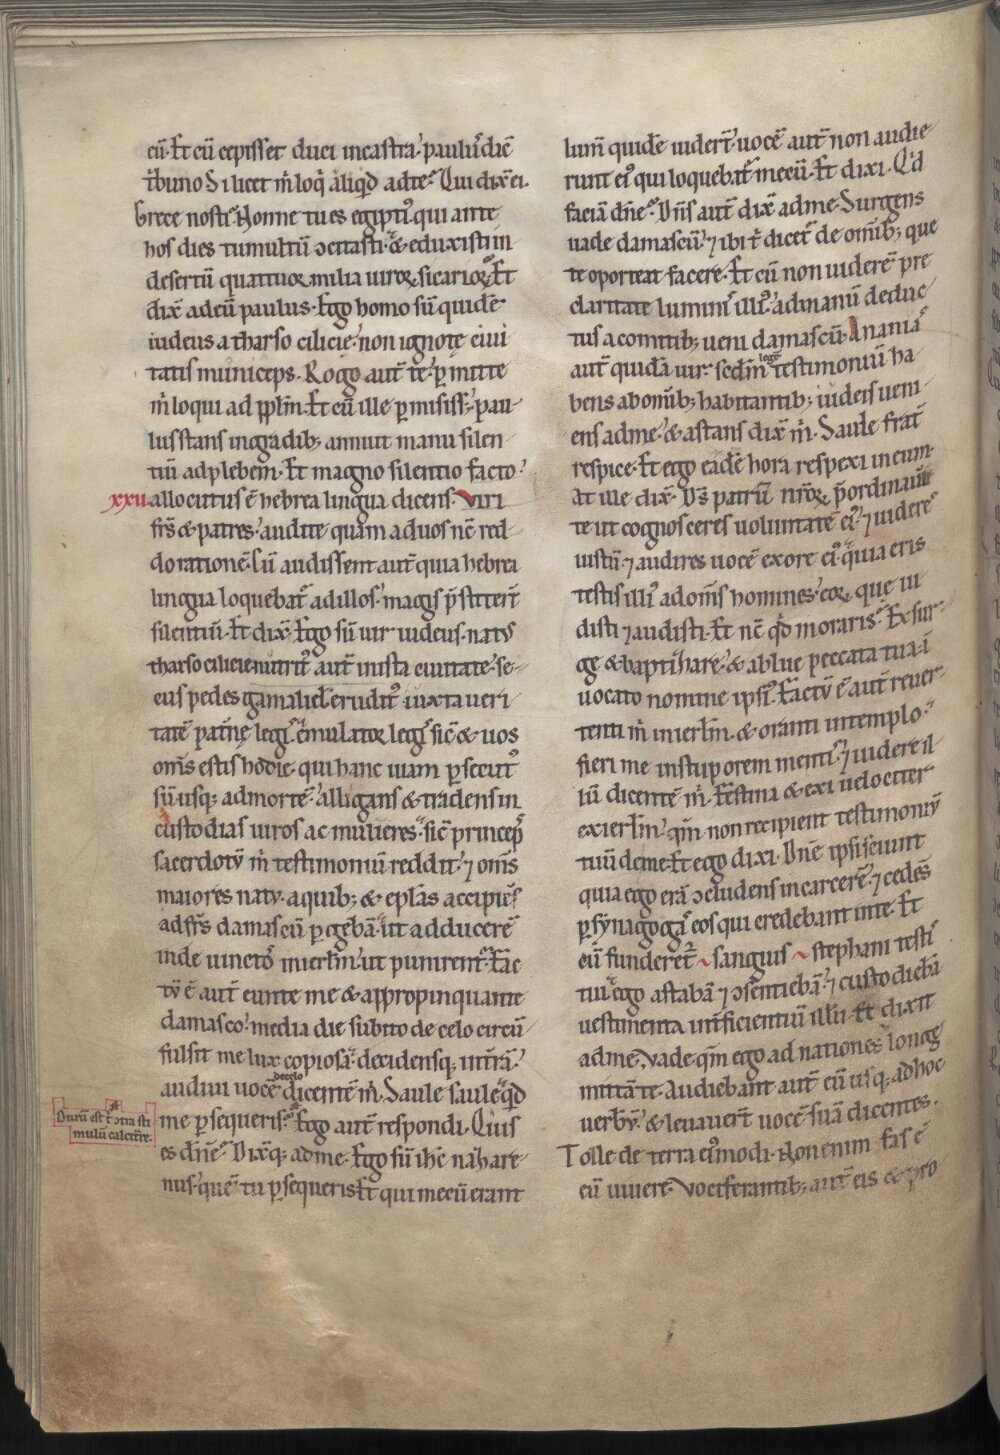 cū. Et cū cepisset duci incastra. paulus dic̄
t̄buno Si licet m̄ loq̄ aliqd̄ adte? Qui dix̄ ei.
Grece nosti? Nonne tu es egipti᷒ qui ante
hos dies tumultū ꝯcitasti. & eduxisti in
desertū quattuor milia uiroꝝ sicarioꝝ? Et
dix̄ adeū paulus. Ego homo sū quidē
iudeus a tharso cilicie. non ignotę ciui
tatis municeps. Rogo aut̄ te. ꝑmitte
m̄ loqui ad pplm̄. Et cū ille ꝑmisiss&. pau
lus stans ingradib; annuit manu silen
tiū adplebem. Et magno silentio facto.
xxii allocutus ē hebrea lingua dicens. Viri
frs̄ & patres. audite quam aduos nc̄ red
do rationē. Cū audissent aut̄ quia hebrea
lingua loquebat᷒ adillos. magis p̄stiter̄t
silentiū. Et dix̄. Ego sū uir iudeus. natus
tharso cilicie. nutrit᷒ aut̄ inista ciuitate. se-
cus pedes gamaliel. erudit᷒ iuxta ueri
tatē pat̄nę legis. emulator legis sic̄ & uos
om̄s estis hodie. qui hanc uiam ꝑsecut᷒
sū. usq; admortē. alligans & tradens in
custodias uiros ac mulieres. sic̄ princeps
sacerdotū m̄ testimoniū reddit. ⁊ om̄s
maiores natu. aquib; & epłas accipiēs
adfrs̄ damascū ꝑgebā. ut adducerē
inde uinctos inierłm ut punirent᷒. Fac
tū ē aut̄ eunte me & appropinquante
damasco. media die subito de celo circū
fulsit me lux copiosa. decidensq; int̄rā.
audiui uocē decelo dicentē m̄. Saule saule qd̄
Durū est t̄ ꝯtra sti
mulū calcitrare
me ꝑsequeris? Ego aut̄ respondi. Quis
es dn̄e? Dix̄q; ad me. Ego sū ihc̄ nazare
nus. quē tu ꝑsequeris. Et qui mecū erant
lum̄ quidē uider̄t. uocē aut̄ non audie
runt ei᷒ qui loquebat᷒ mecū. Et dixi. Qd̄
faciā dn̄e? Dn̄s aut̄ dix̄ adme. Surgens
uade damascū. ⁊ ibi t̄ dicet᷒ de om̄ib; que
te oporteat facere. Et cū non uiderē pre
claritate luminis illi᷒. admanū deduc
tus acomitib; ueni damascū. Ananias
aut̄ quidā uir scdm̄ legē testimoniū ha
bens abom̄ib; habitantib; iudeis ueni
ens adme. & astans dix̄ m̄. Saule frat̄
respice. Et ego eadē hora respexi in eum.
At ille dix̄. Ds̄ patrū nr̄oꝝ p̄ordinauit
te ut cognosceres uoluntatē ei᷒. ⁊ uideres
iustū. ⁊ audires uocē exore ei᷒. quia eris
testis illi᷒ adom̄s homines. eoꝝ que ui
disti ⁊ audisti. Et nc̄ qd̄ moraris? Exsur
ge & baptizare. & ablue peccata tua. ī
uocato nomine ipsi᷒. Factū ē aut̄ reuer
tenti m̄ inierłm. & oranti intemplo.
fieri me instuporem mentis. ⁊ uidere il
lū dicentē m̄. Festina & exi uelociter
exierłm. qm̄ non recipient testimoniū
tuū deme. Et ego dixi. Dn̄e ipsi sciunt
quia ego erā ꝯcludens incarcerē. ⁊ cedēs
ꝑ synagogas eos qui credebant inte. Et
cū funderet᷒ sanguis stephani testis
tui. ego astabā ⁊ ꝯsentiebā. ⁊ custodiebā
uestimenta int̄ficientiū illū. Et dixit
adme. Vade qm̄ ego ad nationes longe
mittā te. Audiebant aut̄ eū usq; adhoc
uerbū. & leuauer̄t uocē suā dicentes.
Tolle de terra ei᷒modi. Non enim fas ē
eū uiuere. Vociferantib; aut̄ eis & pro